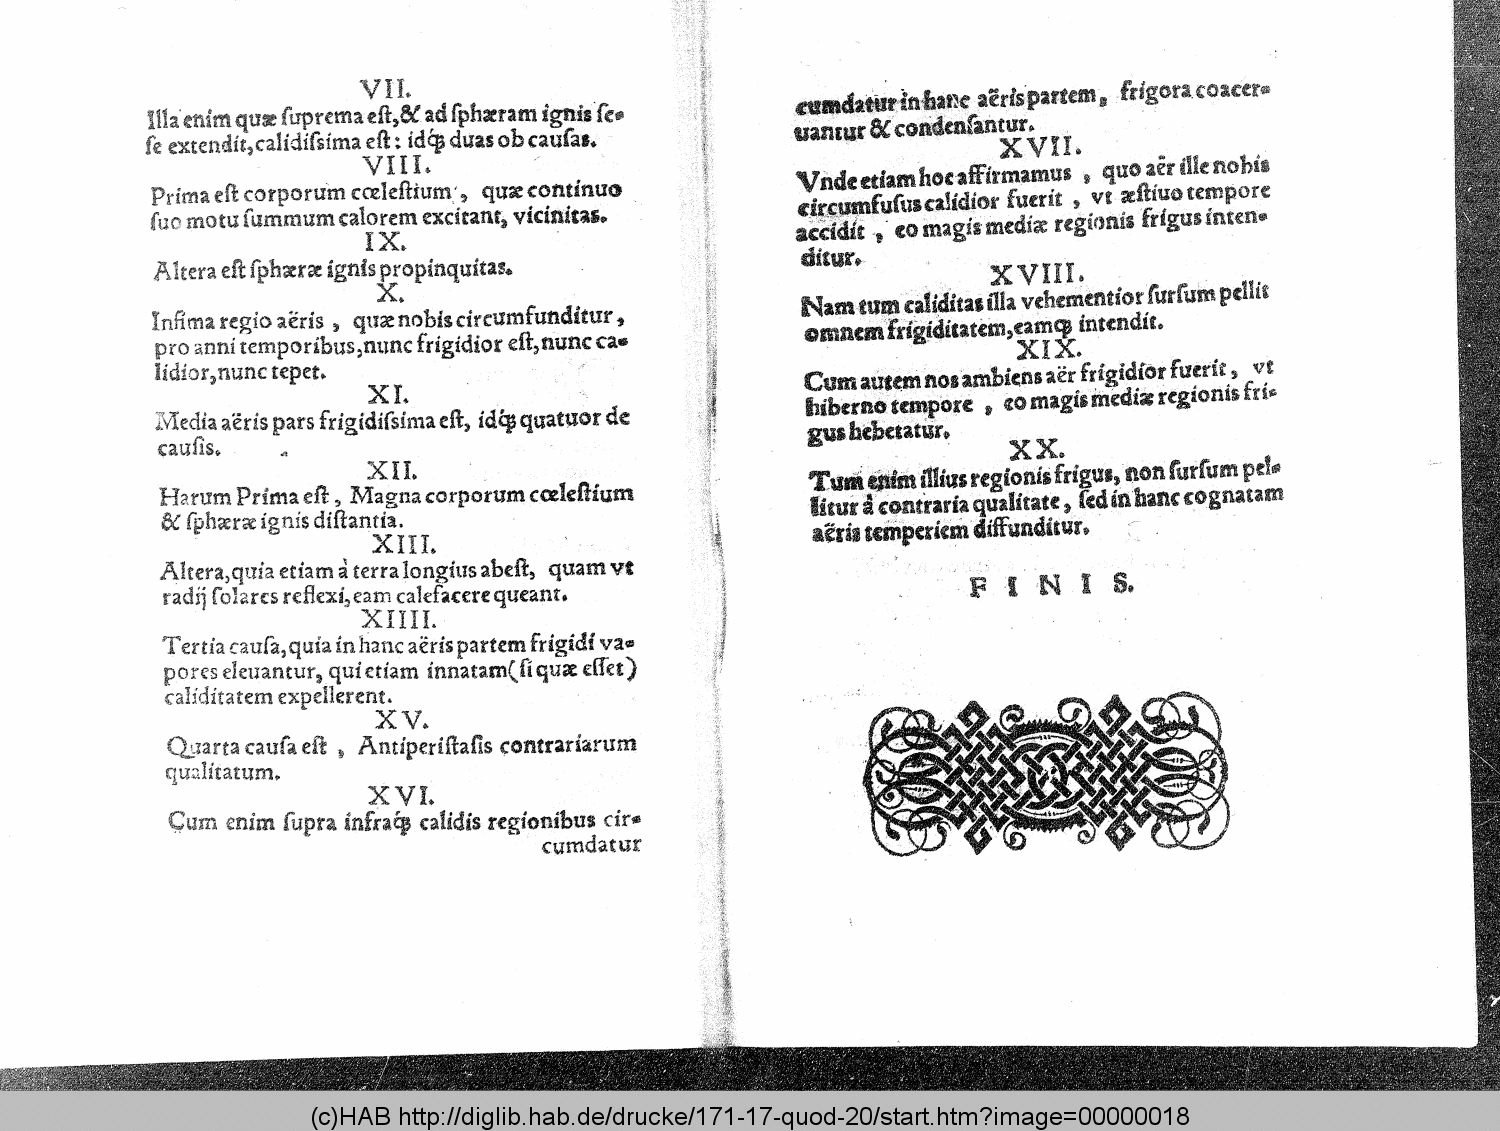 VII.
Illa enim quæ ſuprema eſt,& ad ſphæram ignis ſe-
ſe extendit,calidiſsima eſt: idq́; duas ob cauſas.
VIII.
Prima eſt corporum cœleſtium, quæ continuo
ſuo motu ſummum calorem excitant, vicinitas.
IX.
Altera eſt ſphæræ ignis propinquitas.
X.
Infima regio aëris, quæ nobis circumfunditur,
pro anni temporibus,nunc frigidior eſt,nunc ca-
lidior,nunc tepet.
XI.
Media aëris pars frigidiſsima eſt, idq́; quatuor de
cauſis.
XII.
Harum Prima eſt, Magna corporum cœleſtium
& ſphæræ ignis diſtantia.
XIII.
Altera,quia etiam à terra longius abeſt, quam vt
radij ſolares reflexi,eam calefacere queant.
XIIII.
Tertia cauſa,quia in hanc aëris partem frigidi va-
pores eleuantur, qui etiam innatam(ſi quæ eſſet)
caliditatem expellerent.
XV.
Quarta cauſa eſt, Antiperiſtaſis contrariarum
qualitatum.
XVI.
Cum enim ſupra infraq́; calidis regionibus cir-
cumdatur
cumdatur in hanc aëris partem, frigora coacer-
uantur & condenſantur.
XVII.
Vnde etiam hoc affirmamus, quo aër ille nobis
circumfuſus calidior fuerit, vt æſtiuo tempore
accidit, eo magis mediæ regionis frigus inten-
ditur.
XVIII.
Nam tum caliditas illa vehementior ſurſum pellit
omnem frigiditatem,eamq́; intendit.
XIX.
Cum autem nos ambiens aër frigidior fuerit, vt
hiberno tempore, eo magis mediæ regionis fri-
gus hebetatur.
XX.
Tum enim illius regionis frigus, non ſurſum pel-
litur à contraria qualitate, ſed in hanc cognatam
aëris temperiem diffunditur.
FINIS.
(c)HAB http://diglib.hab.de/drucke/171-17-quod-20/start.htm?image=00000018